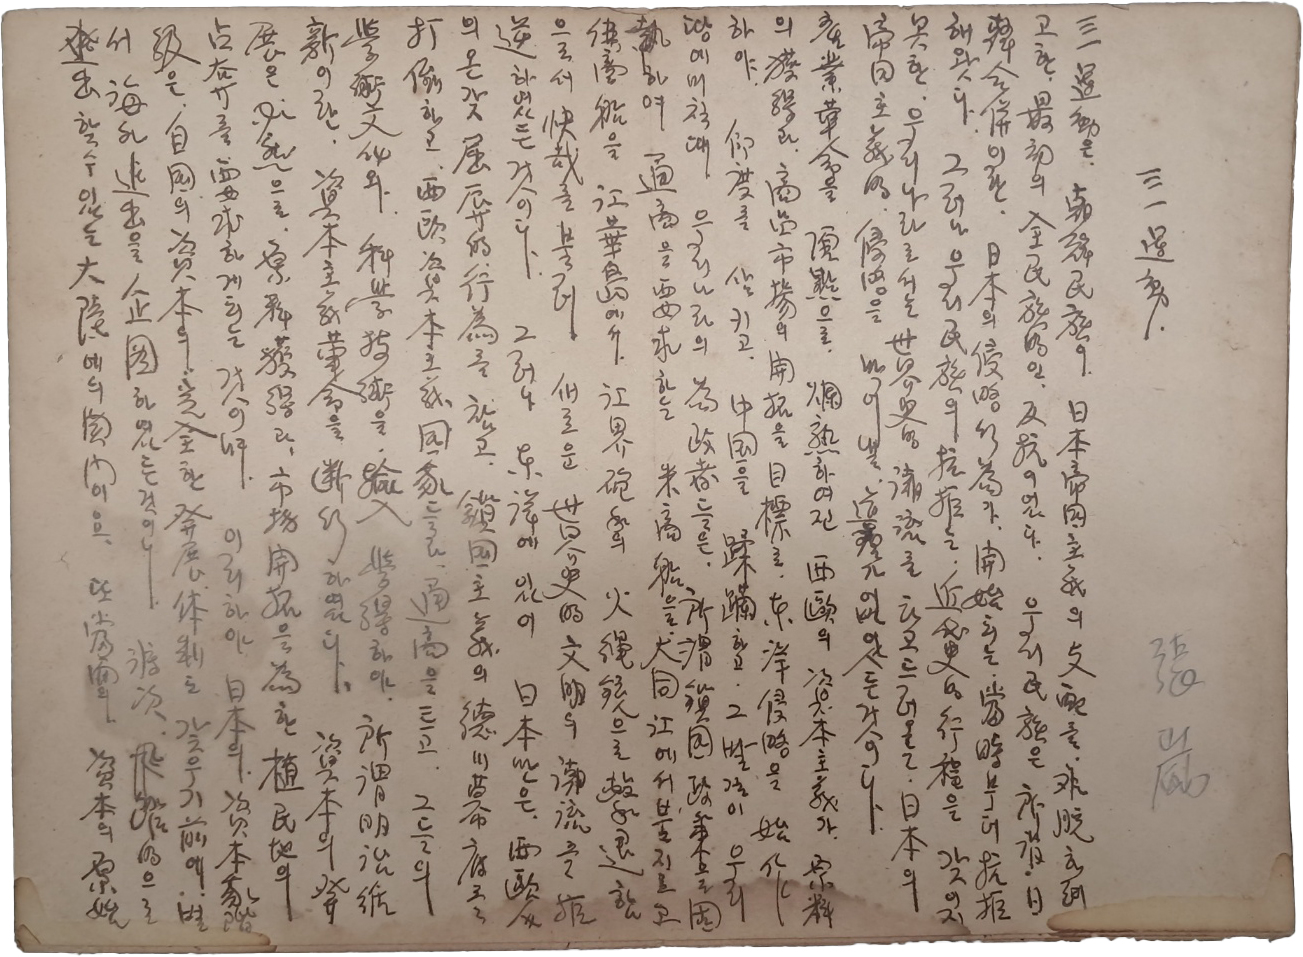 三一運動.
張
三一運動은, 朝鮮民族이, 日本帝国主義의 支配를, 脫
고한, 最初의 全民族的인, 反抗이었다. 우리民族은 所謂, 日
韓合併이란, 日本의 侵略行為가, 開始되는, 當時부터 抗拒
해왔다. 그러나 우리民族의 抗拒는, 近代史的行程을 갖이지
못한, 우리나라로서는 世界史的 潮流를 타고드러오는, 日本의
帝国主義的, 侵略을
産業革命을 頂點으로, 爛熟하여진 西歐의 資本主義가, 原料
의 獲得과, 商品市場의 開拓을 目標로, 東洋侵略을 始作
하야, 印度를 삼키고, 中国을 蹂躪하고, 그 발길이 우리
땅에미칠때 우리나라의 為政者들은, 所謂 鎖国政策을 固
執하여 通商을 要求하는 米商船을 大同江에서 불지르고
佛商船을 江華島에서, 火繩銃으로
으로서 快哉를 불르며 새로운 世界史的 文明의 潮流를 拒
逆하였든것이다. 그러나 東洋에 있어 日本만은, 西歐
의 온갖 屈辱的行為를 참고, 鎖国主義의 德川幕府를
打倒하고, 西歐資本主義国家들과, 通商을 트고, 그들의
學術文化와, 科學技術을, 輸入 學得하야, 所謂 明治維
新이란, 資本主義革命을 斷行하였다. 資本의 發
展은 必然으로, 原料獲得과, 市場開拓을 為한 植民地의
占有를 要求하게되는 것이며, 이리하야, 日本의, 資本家階
級은, 自国의 資本의, 完全한 發展体制도 갖우기前에, 벌
서 海外進出을 企圖하였든것이니 漸次,
進出할수있는 大陸에의 關門이요, 또 當時, 資本의 原始